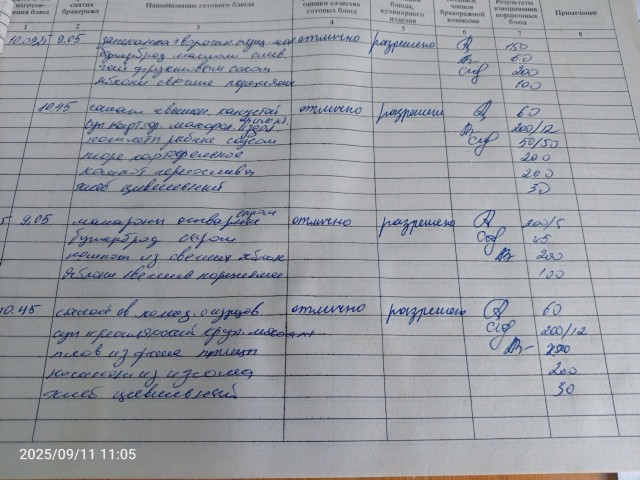 готов-
ния блюд
снятия
бракеража
Наименование готового блюда
оценки качества
готовых блюд
блюда,
кулинарного
изделия
членов
бракеражной
комиссии
Результаты
взвешивания
порционных
блюд
Примечание
1 2 3 4 5 6 7 8
9.05 запеканка творожн. отлично разрешено 150
бутерброд маслом слив. 60
чай фруктовым соком 200
яблоки свежие порезанные 100
10.45 салат квашен. капустой отлично разрешен 60
суп картоф. макарон. 200/12
котлет рыбные соусом 50/50
пюре картофельное 200
компот 200
хлеб пшеничный 30
9.05 макароны отварные сыром отлично разрешено 200/5
бутерброд сыром 45
компот из свежих яблок 200
яблоки свежие порезанное 100
10.45 салат св. помид. огурцов отлично разрешено 60
суп крестьянский круп. 200/12
плов из филе птицы
компот из изюма 200
хлеб пшеничный 30
2025/09/11 11:05